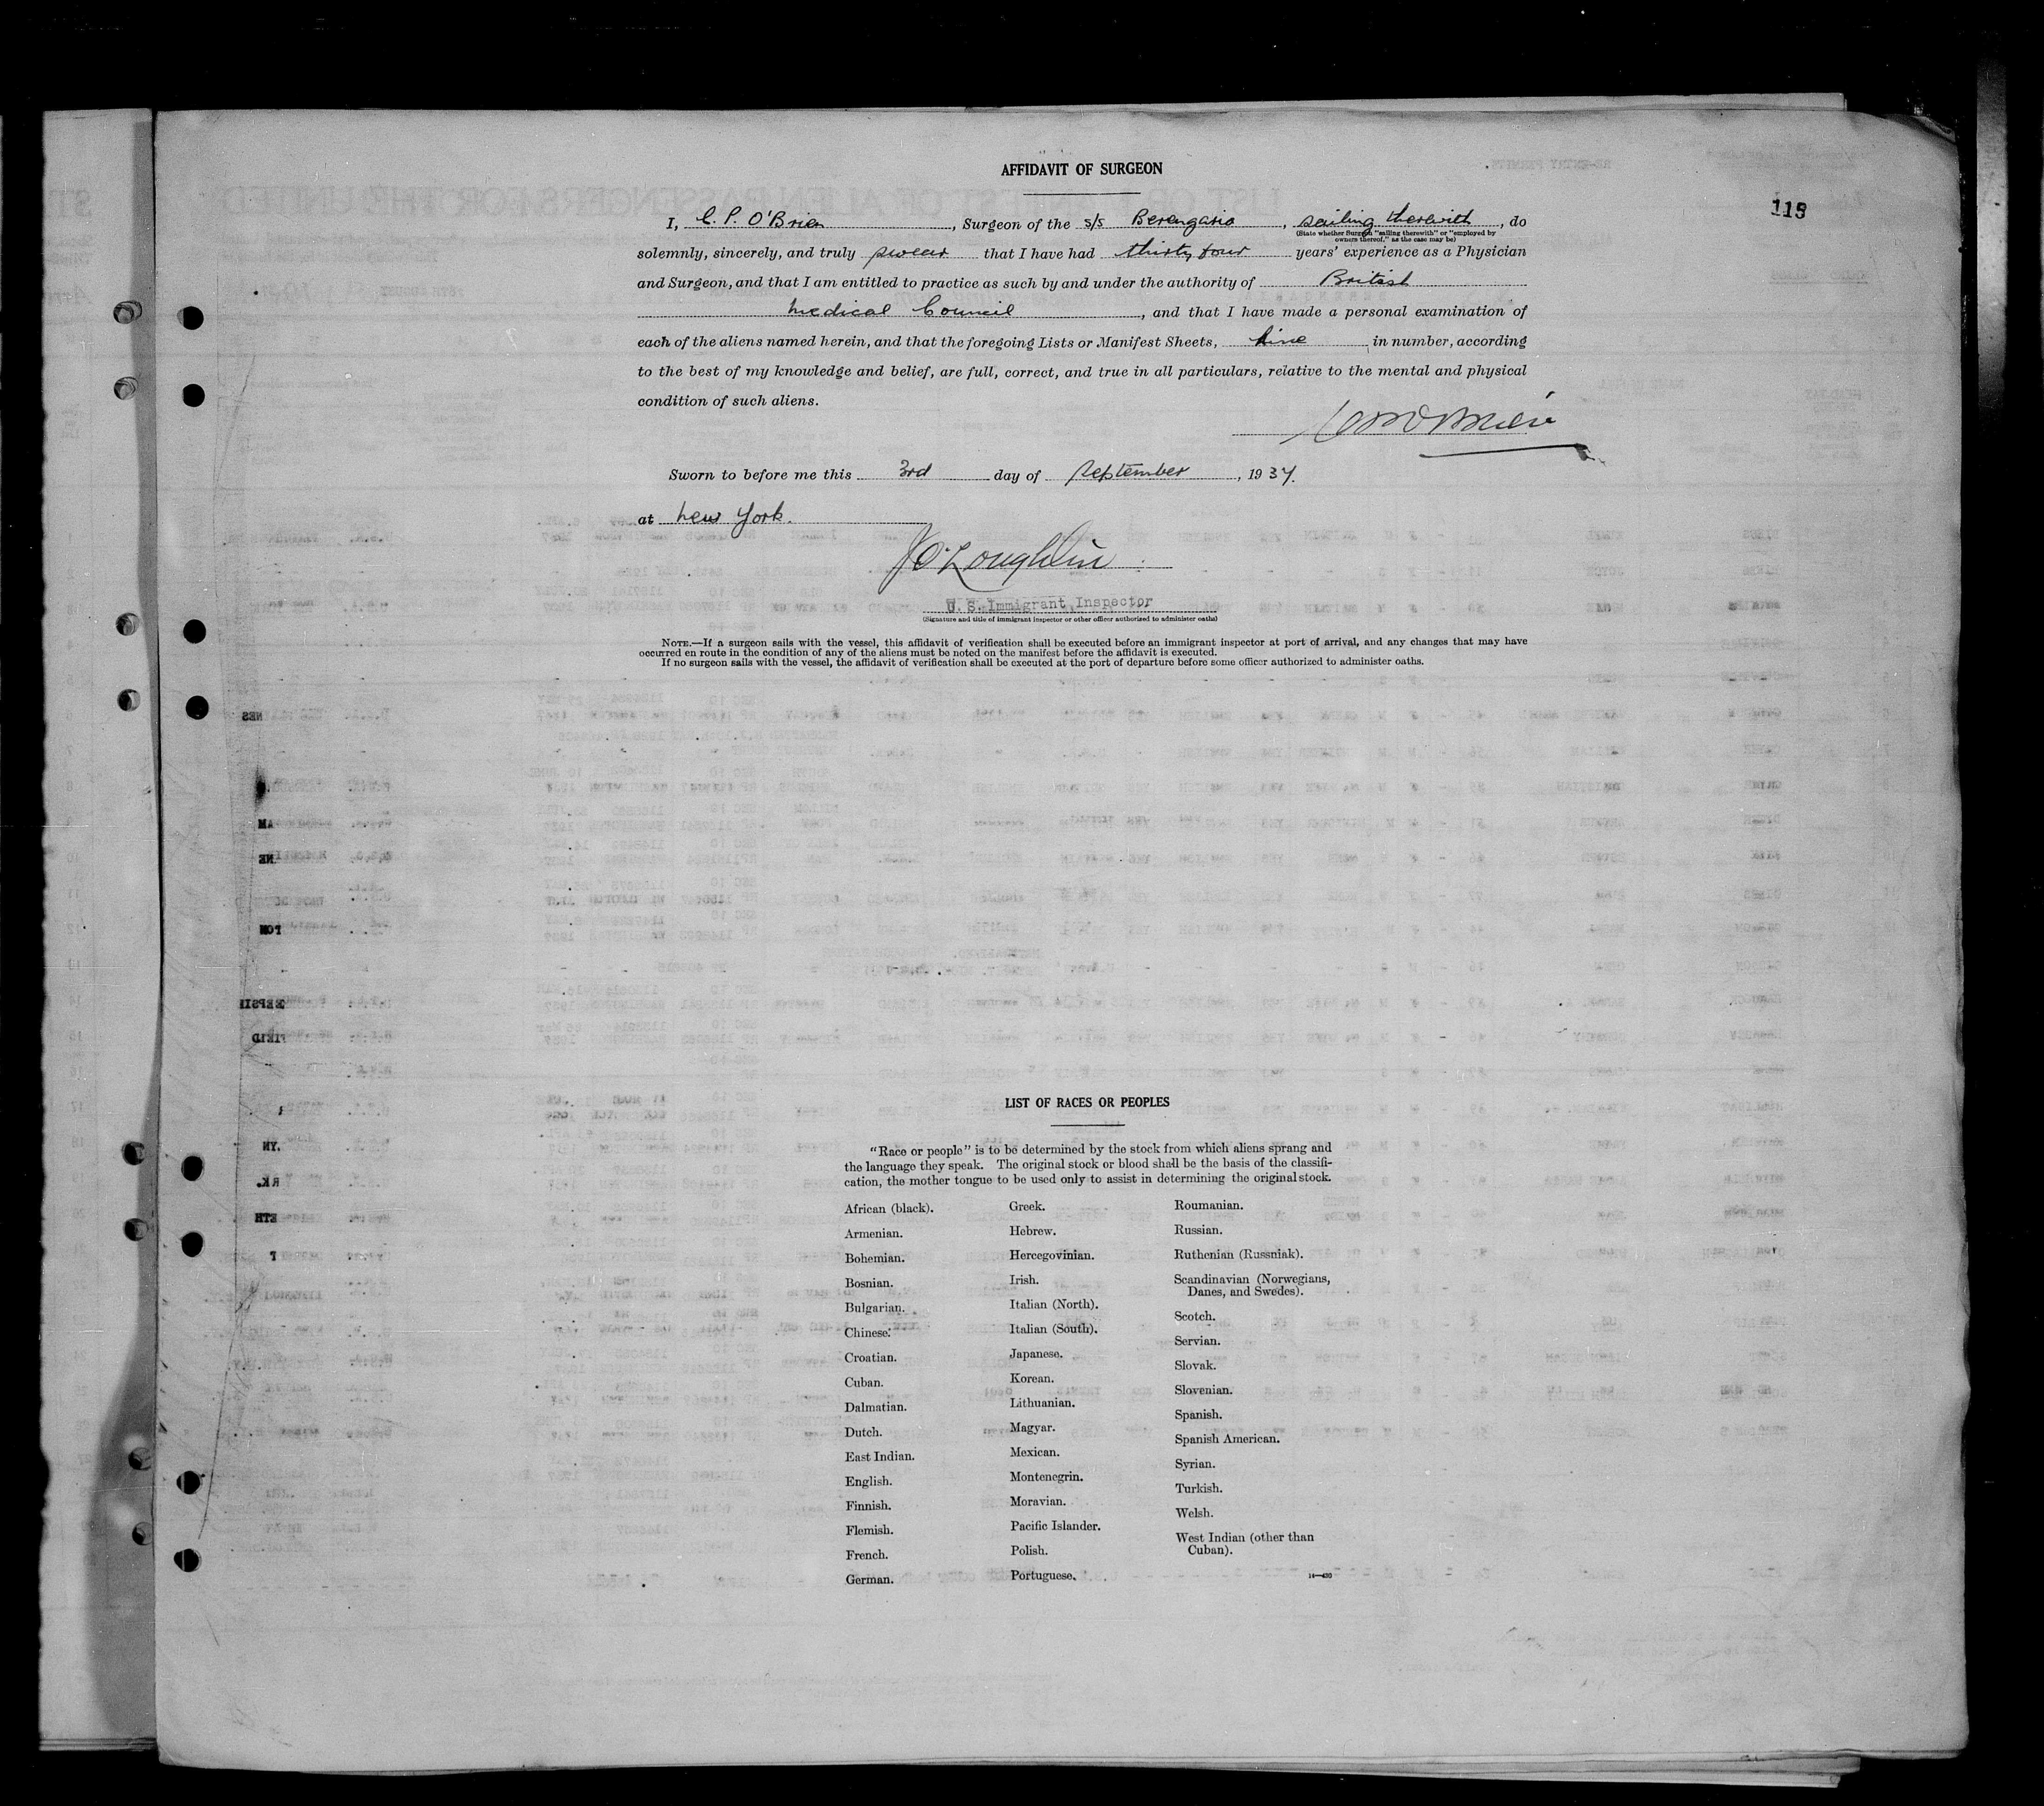 AFFIDAVIT OF SURGEON
115
I, C. P. O'Brien, Surgeon of the s/s Berengaria, sailing therewith, do
(State whether Surgeon "sailing therewith" or "employed by
owners thereof," as the case may be)
solemnly, sincerely, and truly swear that I have had thirty four years' experience as a Physician
and Surgeon, and that I am entitled to practice as such by and under the authority of British
Medical Council, and that I have made a personal examination of
each of the aliens named herein, and that the foregoing Lists or Manifest Sheets, in number, according
to the best of my knowledge and belief, are full, correct, and true in all particulars, relative to the mental and physical
condition of such aliens.
Sworn to before me this 3rd day of September, 1937.
at New York.
J O'Loughlin
U. S. Immigrant Inspector
(Signature and title of immigrant inspector or other officer authorized to administer oaths)
NOTE.—If a surgeon sails with the vessel, this affidavit of verification shall be executed before an immigrant inspector at port of arrival, and any changes that may have
occurred en route in the condition of any of the aliens must be noted on the manifest before the affidavit is executed.
If no surgeon sails with the vessel, the affidavit of verification shall be executed at the port of departure before some officer authorized to administer oaths.
LIST OF RACES OR PEOPLES
"Race or people" is to be determined by the stock from which aliens sprang and
the language they speak. The original stock or blood shall be the basis of the classifi-
cation, the mother tongue to be used only to assist in determining the original stock.
African (black).
Armenian.
Bohemian.
Bosnian.
Bulgarian.
Chinese.
Croatian.
Cuban.
Dalmatian.
Dutch.
East Indian.
English.
Finnish.
Flemish.
French.
German.
Greek.
Hebrew.
Hercegovinian.
Irish.
Italian (North).
Italian (South).
Japanese.
Korean.
Lithuanian.
Magyar.
Mexican.
Montenegrin.
Moravian.
Pacific Islander.
Polish.
Portuguese.
Roumanian.
Russian.
Ruthenian (Russniak).
Scandinavian (Norwegians,
Danes, and Swedes).
Scotch.
Servian.
Slovak.
Slovenian.
Spanish.
Spanish American.
Syrian.
Turkish.
Welsh.
West Indian (other than
Cuban).